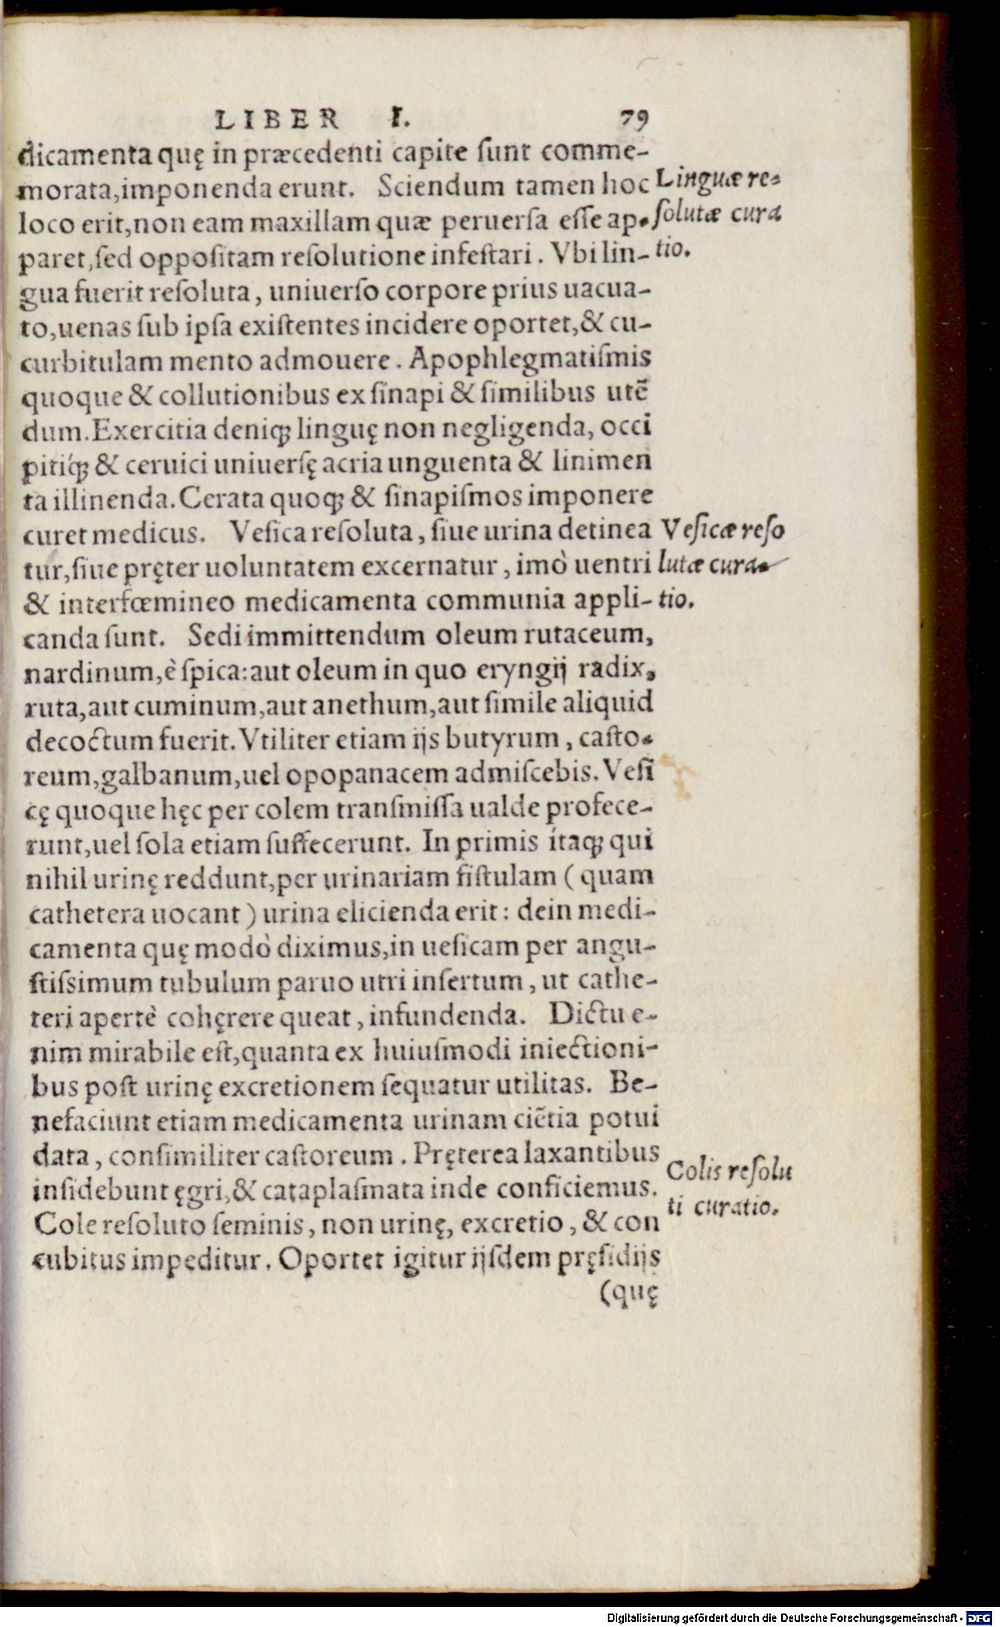 LIBER I. 79
dicamenta quę in præcedenti capite ſunt comme-
morata,imponenda erunt. Sciendum tamen hoc
Linguæ re-
loco erit,non eam maxillam quæ peruerſa eſſe ap-
ſolutæ cura
paret,ſed oppoſitam reſolutione infeſtari. Vbi lin-
tio.
gua fuerit reſoluta, uniuerſo corpore prius uacua-
to,uenas ſub ipſa exiſtentes incidere oportet,& cu-
curbitulam mento admouere. Apophlegmatiſmis
quoque & collutionibus ex ſinapi & ſimilibus utẽ
dum.Exercitia deniqꝫ linguę non negligenda, occi
pitiqꝫ & ceruici uniuerſę acria unguenta & linimen
ta illinenda.Cerata quoqꝫ & ſinapiſmos imponere
curet medicus. Veſica reſoluta, ſiue urina detinea
Veſicæ reſo
tur,ſiue pręter uoluntatem excernatur, imò uentri
lutæ cura-
& interfœmineo medicamenta communia appli-
tio.
canda ſunt. Sedi immittendum oleum rutaceum,
nardinum,è ſpica:aut oleum in quo eryngij radix,
ruta,aut cuminum,aut anethum,aut ſimile aliquid
decoctum fuerit. Vtiliter etiam ijs butyrum, caſto-
reum,galbanum,uel opopanacem admiſcebis. Veſi
cę quoque hęc per colem tranſmiſſa ualde profece-
runt,uel ſola etiam ſuffecerunt. In primis itaqꝫ qui
nihil urinę reddunt,per urinariam fiſtulam (quam
cathetera uocant) urina elicienda erit: dein medi-
camenta quę modò diximus,in ueſicam per angu-
ſtiſsimum tubulum paruo utri inſertum, ut cathe-
teri apertè cohęrere queat, infundenda. Dictu e-
nim mirabile eſt,quanta ex huiuſmodi iniectioni-
bus poſt urinę excretionem ſequatur utilitas. Be-
nefaciunt etiam medicamenta urinam ciẽtia potui
data, conſimiliter caſtoreum. Pręterea laxantibus
inſidebunt ęgri,& cataplaſmata inde conficiemus.
Colis reſolu
Cole reſoluto ſeminis, non urinę, excretio, & con
ti curatio.
cubitus impeditur. Oportet igitur ijſdem pręſidijs
(quę
Digitalisierung gefördert durch die Deutsche Forschungsgemeinschaft - DFG